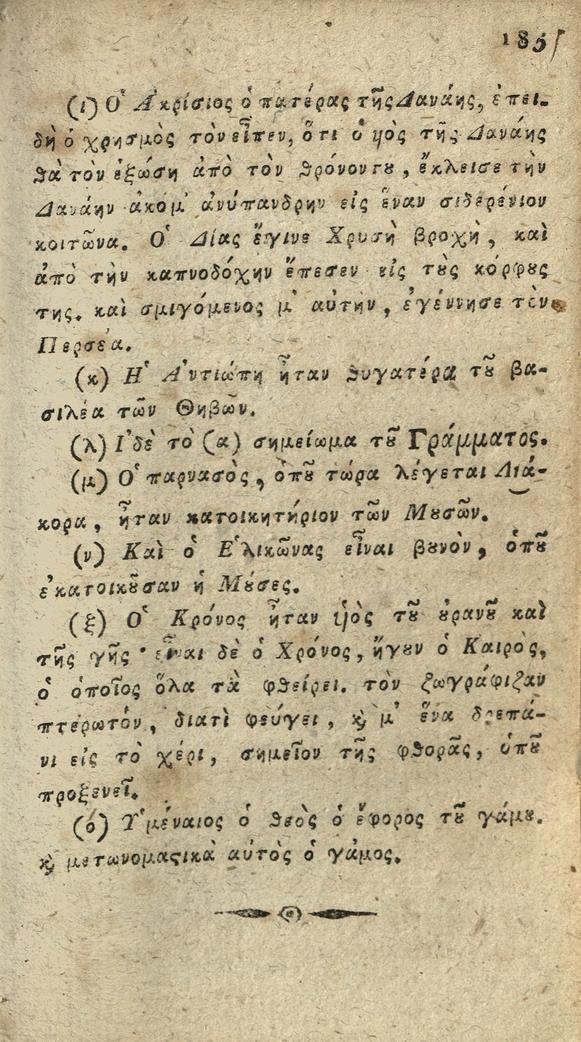 185
(ι) Ὁ Ἀκρίσιος ὁ πατέρας τῆς Δανάης, ἐπει-
δὴ ὁ χρησμὸς τὸν εἶπεν, ὅτι ὁ ὑιὸς τῆς Δανάης
θὰ τὸν ἐξώσῃ ἀπὸ τὸν θρόνον τȣ, ἔκλεισε τὴν
Δανάην ἀκομ' ἀνύπανδρην εἰς ἕναν σιδερένιον
κοιτῶνα. Ὁ Δίας ἔγινε Χρυσὴ βροχὴ, καὶ
ἀπὸ τὴν καπνοδόχην ἔπεσεν εἰς τȣς κόρφȣς
της. καὶ σμιγόμενος μ' αὐτὴν, ἐγέννησε τὸν
Περσέα.
(κ) Ἡ Ἀντιώπη ἦταν θυγατέρα τȣ͂ βα-
σιλέα τῶν Θηβῶν.
(λ) Ἰδὲ τὸ (α) σημείωμα τȣ͂ Γράμματος.
(μ) Ὁ παρνασὸς, ὁπȣ͂ τώρα λέγεται Λιά-
κορα, ἦταν κατοικητήριον τῶν Μȣσῶν.
(ν) Καὶ ὁ Ἑλικῶνας εἶναι βȣνὸν, ὁπȣ͂
ἐκατοικȣ͂σαν ἡ Μȣ́σες.
(ξ) Ὁ Κρόνος ἦταν ὑιὸς τȣ͂ ȣρανȣ͂ καὶ
τῆς γῆς· εἶναι δὲ ὁ Χρόνος, ἤγȣν ὁ Καιρὸς,
ὁ ὁποῖος ὅλα τὰ φθείρει. τὸν ζωγράφιζαν
πτερωτὸν, διατὶ φεύγει, ϗ μ' ἕνα δρεπά-
νι εἰς τὸ χέρι, σημεῖον τῆς φθορᾶς, ὁπȣ͂
προξενεῖ.
(ό) Ὑμέναιος ὁ θεὸς ὁ ἔφορος τȣ͂ γάμȣ.
ϗ μετωνομαϛικὰ αὐτὸς ὁ γάμος.